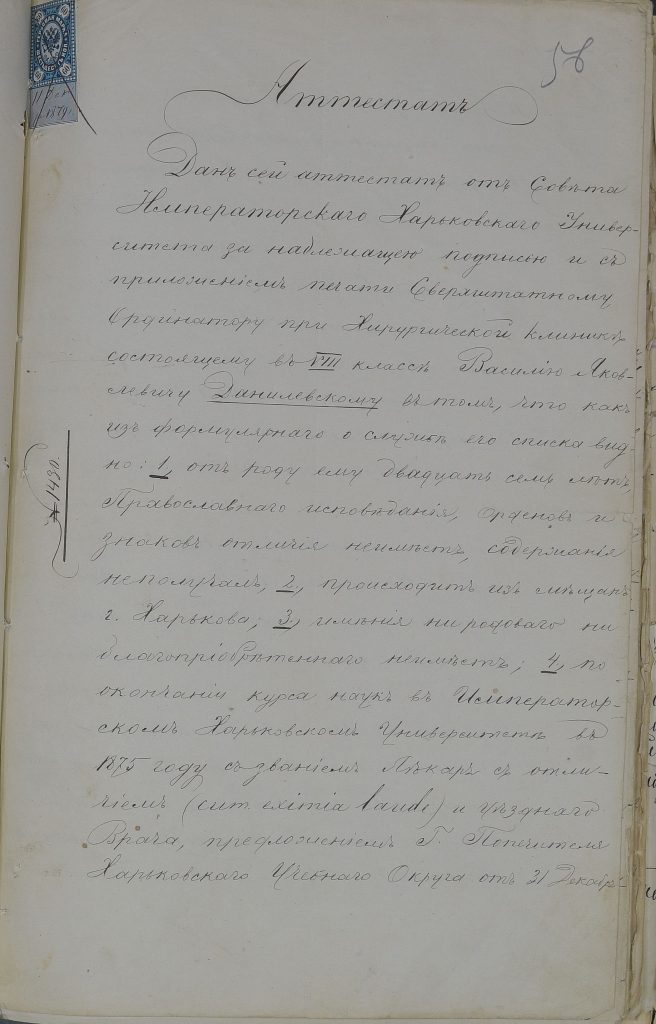 58
Аттестатъ
Данъ сей аттестатъ отъ Совѣта
Императорскаго Харьковскаго Универ-
ситета за надлежащею подписью и съ
приложеніемъ печати Сверхштатному
Ординатору при Хирургической клиникѣ
состоящему въ VIII классѣ Василію Яков-
левичу Данилевскому въ томъ, что какъ
изъ формулярнаго о службѣ его списка вид-
но: 1, отъ роду ему двадцать семь лѣтъ,
Православнаго исповѣданія, орденовъ и
знаковъ отличія неимѣетъ, содержанія
неполучалъ, 2, происходитъ изъ мѣщанъ
г. Харькова; 3, имѣнія ни родоваго ни
благопріобрѣтеннаго неимѣетъ; 4, по
окончаніи курса наукъ въ Император-
скомъ Харьковскомъ Университетѣ въ
1875 году съ званіемъ Лѣкаря съ отли-
чіемъ (cum eximia laude) и уѣзднаго
Врача, предложеніемъ Г. Попечителя
Харьковскаго Учебнаго Округа отъ 31 Декабр-
№ 1490.
1879